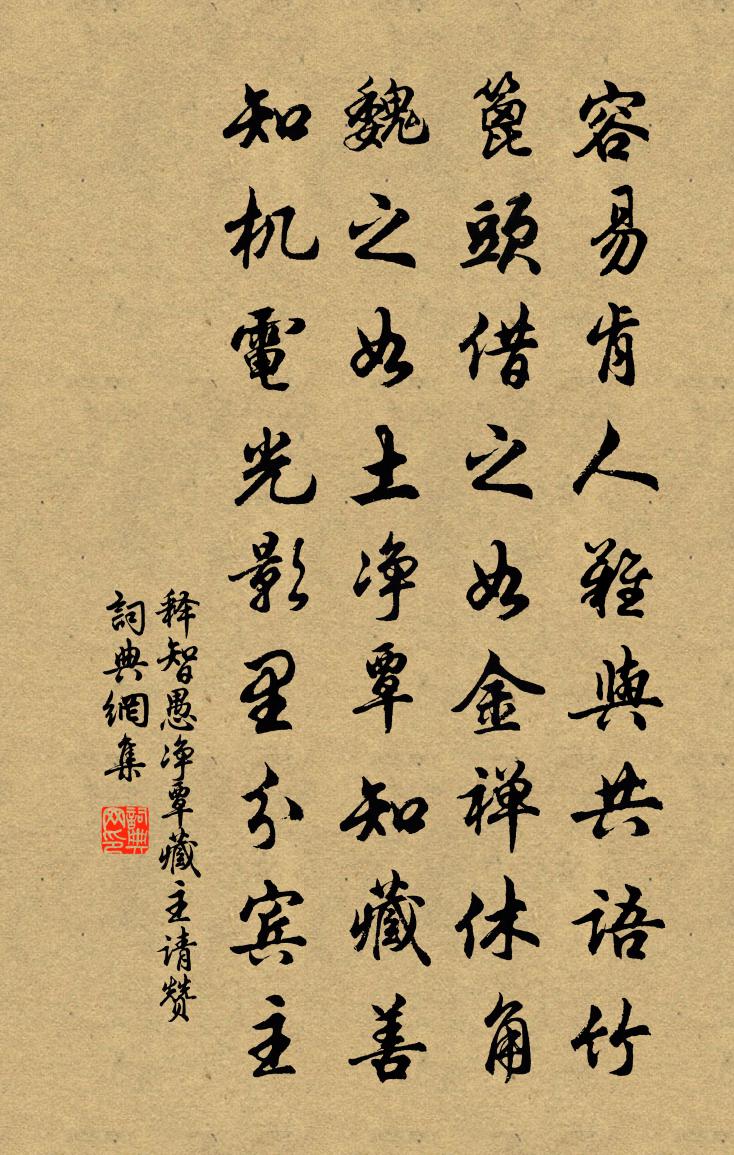 容易肯人難與共語竹
篦頭借之如金禅休角
魏之如土净覃知藏善
知机電光影里分宾主
释智愚净覃藏主请赞
詞典網集
詞典网印